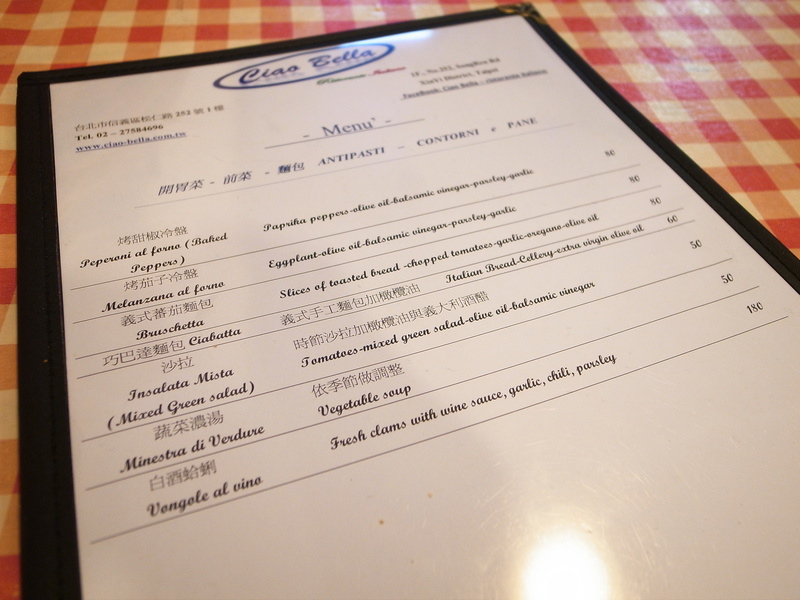 Ciao Bella
Ristorante Italiano
台北市信義區松仁路 252 號 1 樓
Tel. 02 – 27584696
www.ciao-bella.com.tw
1F., No.252, SongRen Rd
XinYi District, Taipei
FaceBook: Ciao Bella – ristorante italiano
- Menu' -
開胃菜 - 前菜 - 麵包 ANTIPASTI – CONTORNI e PANE
烤甜椒冷盤
Peperoni al forno (Baked Peppers)
Paprika peppers-olive oil-balsamic vinegar-parsley-garlic 80
烤茄子冷盤
Melanzana al forno
Eggplant-olive oil-balsamic vinegar-parsley-garlic 80
義式蕃茄麵包
Bruschetta
Slices of toasted bread -chopped tomatoes-garlic-oregano-olive oil 80
巧巴達麵包 Ciabatta
義式手工麵包加橄欖油 Italian Bread-Cellery-extra virgin olive oil 60
沙拉
Insalata Mista
(Mixed Green salad)
時節沙拉加橄欖油與義大利酒醋
Tomatoes-mixed green salad-olive oil-balsamic vinegar 50
蔬菜濃湯
Minestra di Verdure
依季節做調整
Vegetable soup 50
白酒蛤蜊
Vongole al vino
Fresh clams with wine sauce, garlic, chili, parsley 180